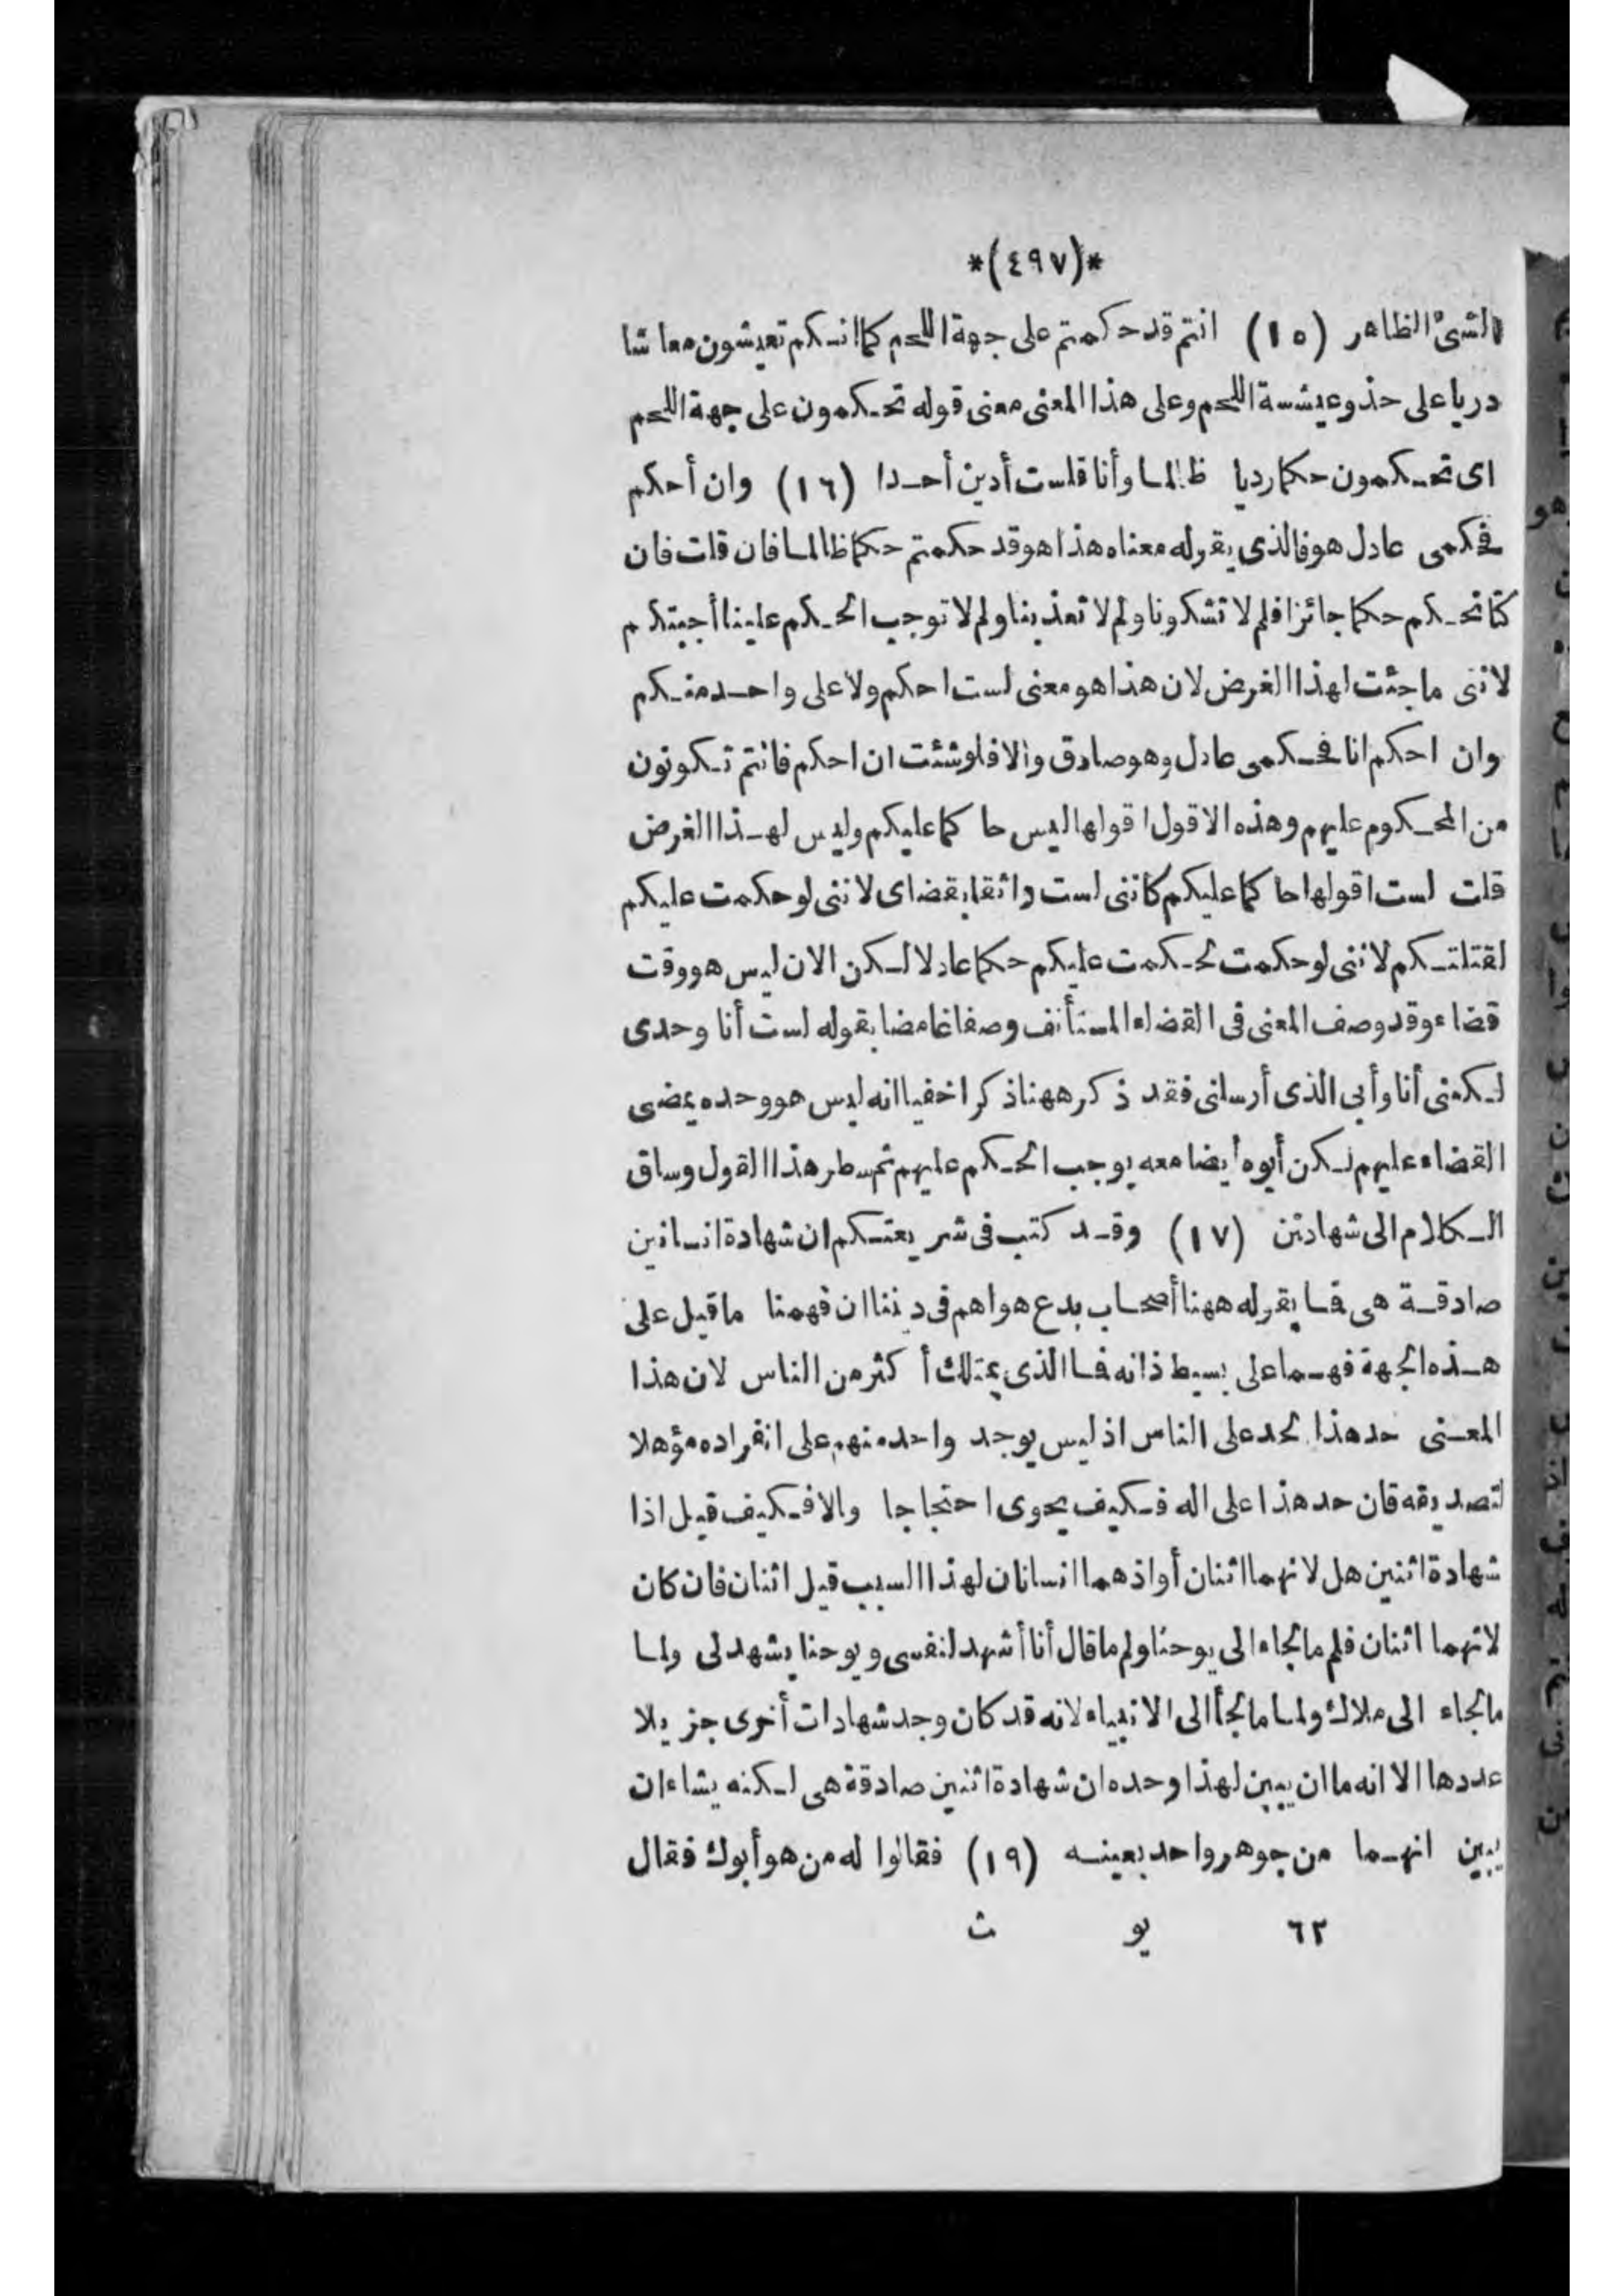 *(٤٩٧)*
الشئ الظاهر (١٥) انتم قد حكمتم على جهة اللحم كما انكم تعيشون معاشا
درياعلى حذو عيشسة اللحم وعلى هذا المعنى معنى قوله تحكمون على جهة اللحم
اى تحكمون حكمارديا ظالما وأنا قلست أدين أحدا (١٦) وان أحكم
فحكمى عادل هو فالذى يقوله معناه هذا هو قد حكمتم حكما ظالما فان قلت فان
كنا نحكم حكما جائزا فلم لا تشكونا ولم لا تعذبنا ولم لا توجب الحكم علينا أجبتكم
لاننى ماجئت لهذا الغرض لان هذا هو معنى لست احكم ولا على واحد منكم
وان احكم انا فحكمى عادل وهو صادق والا فلو شئت ان احكم فانتم تكونون
من المحكوم عليهم وهذه الاقول اقولها ليس حا كما عليكم وليس لهذا الغرض
قلت لست اقولها حا كما عليكم كاننى لست واثقا بقضاى لاننى لو حكمت عليكم
لقتلتكم لاننى لو حكمت لحكمت عليكم حكما عادلا لكن الان ليس هو وقت
قضاء وقد وصف المعنى فى القضاء المستأنف وصفا غامضا بقوله لست أنا وحدى
لكننى أنا وأبى الذى أرسلنى فقد ذكر ههنا ذكرا خفيا انه ليس هو وحده يمضى
القضاء عليهم لكن أبوه أيضا معه يوجب الحكم عليهم ثم سطر هذا القول وساق
الكلام الى شهادتين (١٧) وقد كتب فى شريعتكم ان شهادة انسانين
صادقة هى فما يقوله ههنا أصحاب بدع هواهم فى ديننا ان فهمنا ماقيل على
هذه الجهة فهما على بسيط ذاته فما الذى يمتلك أكثر من الناس لان هذا
المعنى حد هذا الحد على الناس اذ ليس يوجد واحد منهم على انفراده مؤهلا
لتصديقه فان حد هذا على اله فكيف يحوى احتجاجا والا فكيف قيل اذا
شهادة اثنين هل لانهما اثنان أو اذهما انسانان لهذا السبب قيل اثنان فان كان
لانهما اثنان فلم ما لجاء الى يوحنا ولم ما قال أنا أشهد لنفسى ويوحنا يشهد لى ولما
ما لجاء الى ملاك ولما ما لجأ الى الانبياء لانه قد كان وجد شهادات أخرى جزيلا
عددها الا انه ما ان يبين لهذا وحده ان شهادة اثنين صادقة هى لكنه يشاء ان
يبين انهما من جوهر واحد بعينه (١٩) فقالوا له من هو أبوك فقال
٦٣ يو ث